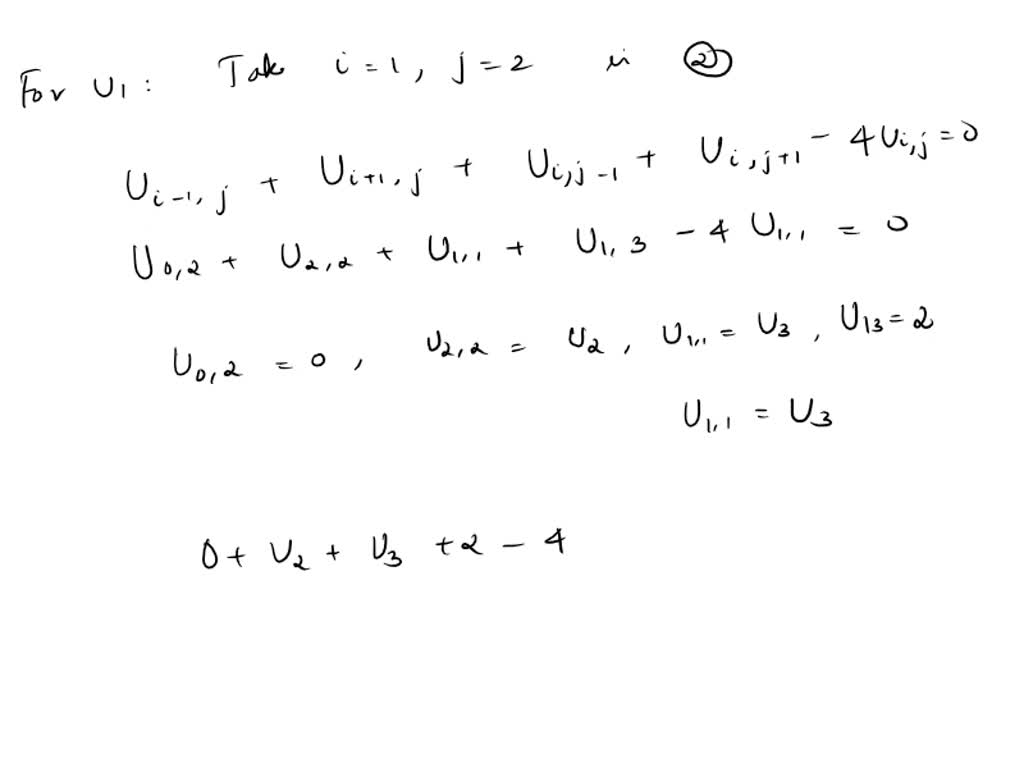 For U1 : Take i = 1, j = 2 in ②
Ui-1, j + Ui+1, j + Ui,j-1 + Ui,j+1 - 4Ui,j = 0
U0,2 + U2,2 + U1,1 + U1,3 - 4 U1,1 = 0
U0,2 = 0, U2,2 = U2, U1,1 = U3, U13 = 2
U1,1 = U3
0 + U2 + U3 + 2 - 4